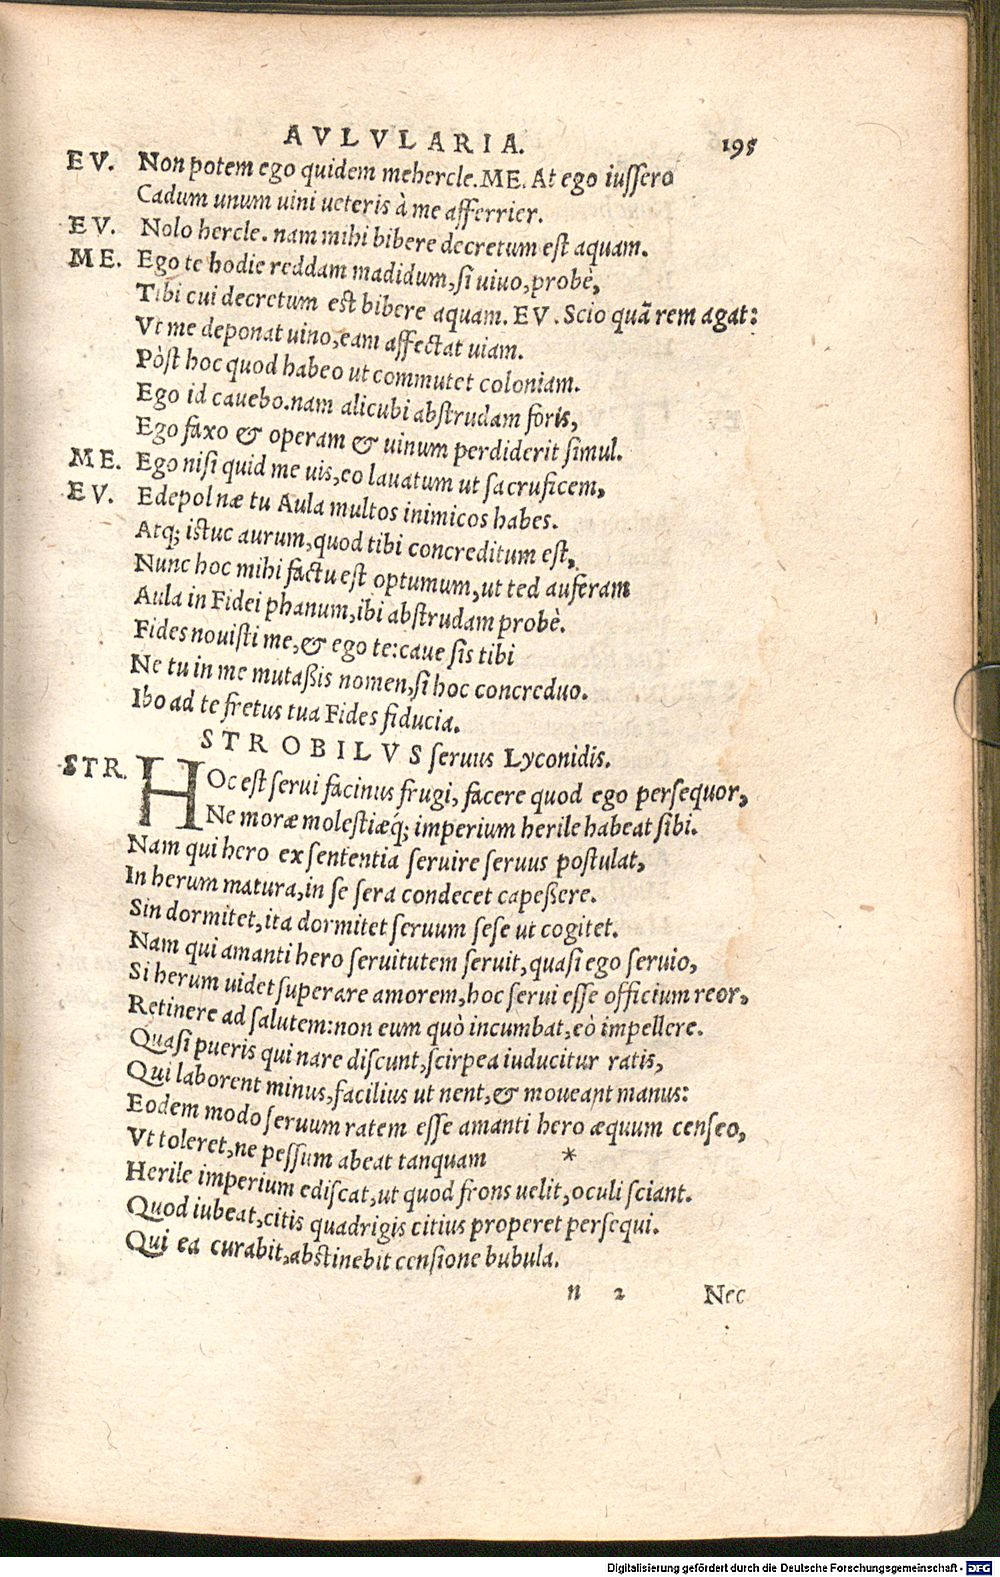 AVLVLARIA. 195
EV. Non potem ego quidem mehercle. ME. At ego iussero
Cadum unum uini ueteris à me afferrier.
EV. Nolo hercle. nam mihi bibere decretum est aquam.
ME. Ego te hodie reddam madidum, si uiuo, probè,
Tibi cui decretum est bibere aquam. EV. Scio quã rem agat:
Vt me deponat uino, eam affectat uiam.
Pòst hoc quod habeo ut commutet coloniam.
Ego id cauebo. nam alicubi abstrudam foris,
Ego faxo & operam & uinum perdiderit simul.
ME. Ego nisi quid me uis, eo lauatum ut sacruficem,
EV. Edepol næ tu Aula multos inimicos habes.
Atq; istuc aurum, quod tibi concreditum est,
Nunc hoc mihi factu est optumum, ut ted auferam
Aula in Fidei phanum, ibi abstrudam probè.
Fides nouisti me, & ego te: caue sis tibi
Ne tu in me mutaßis nomen, si hoc concreduo.
Ibo ad te fretus tua Fides fiducia.
STROBILVS seruus Lyconidis.
STR. HOc est serui facinus frugi, facere quod ego persequor,
Ne moræ molestiæq́; imperium herile habeat sibi.
Nam qui hero ex sententia seruire seruus postulat,
In herum matura, in se sera condecet capeßere.
Sin dormitet, ita dormitet seruum sese ut cogitet.
Nam qui amanti hero seruitutem seruit, quasi ego seruio,
Si herum uidet superare amorem, hoc serui esse officium reor,
Retinere ad salutem: non eum quò incumbat, eò impellere.
Quasi pueris qui nare discunt, scirpea iuducitur ratis,
Qui laborent minus, facilius ut nent, & moueant manus:
Eodem modo seruum ratem esse amanti hero æquum censeo,
Vt toleret, ne pessum abeat tanquam *
Herile imperium ediscat, ut quod frons uelit, oculi sciant.
Quod iubeat, citis quadrigis citius properet persequi.
Qui ea curabit, abstinebit censione bubula.
n 2 Nec
Digitalisierung gefördert durch die Deutsche Forschungsgemeinschaft - DFG